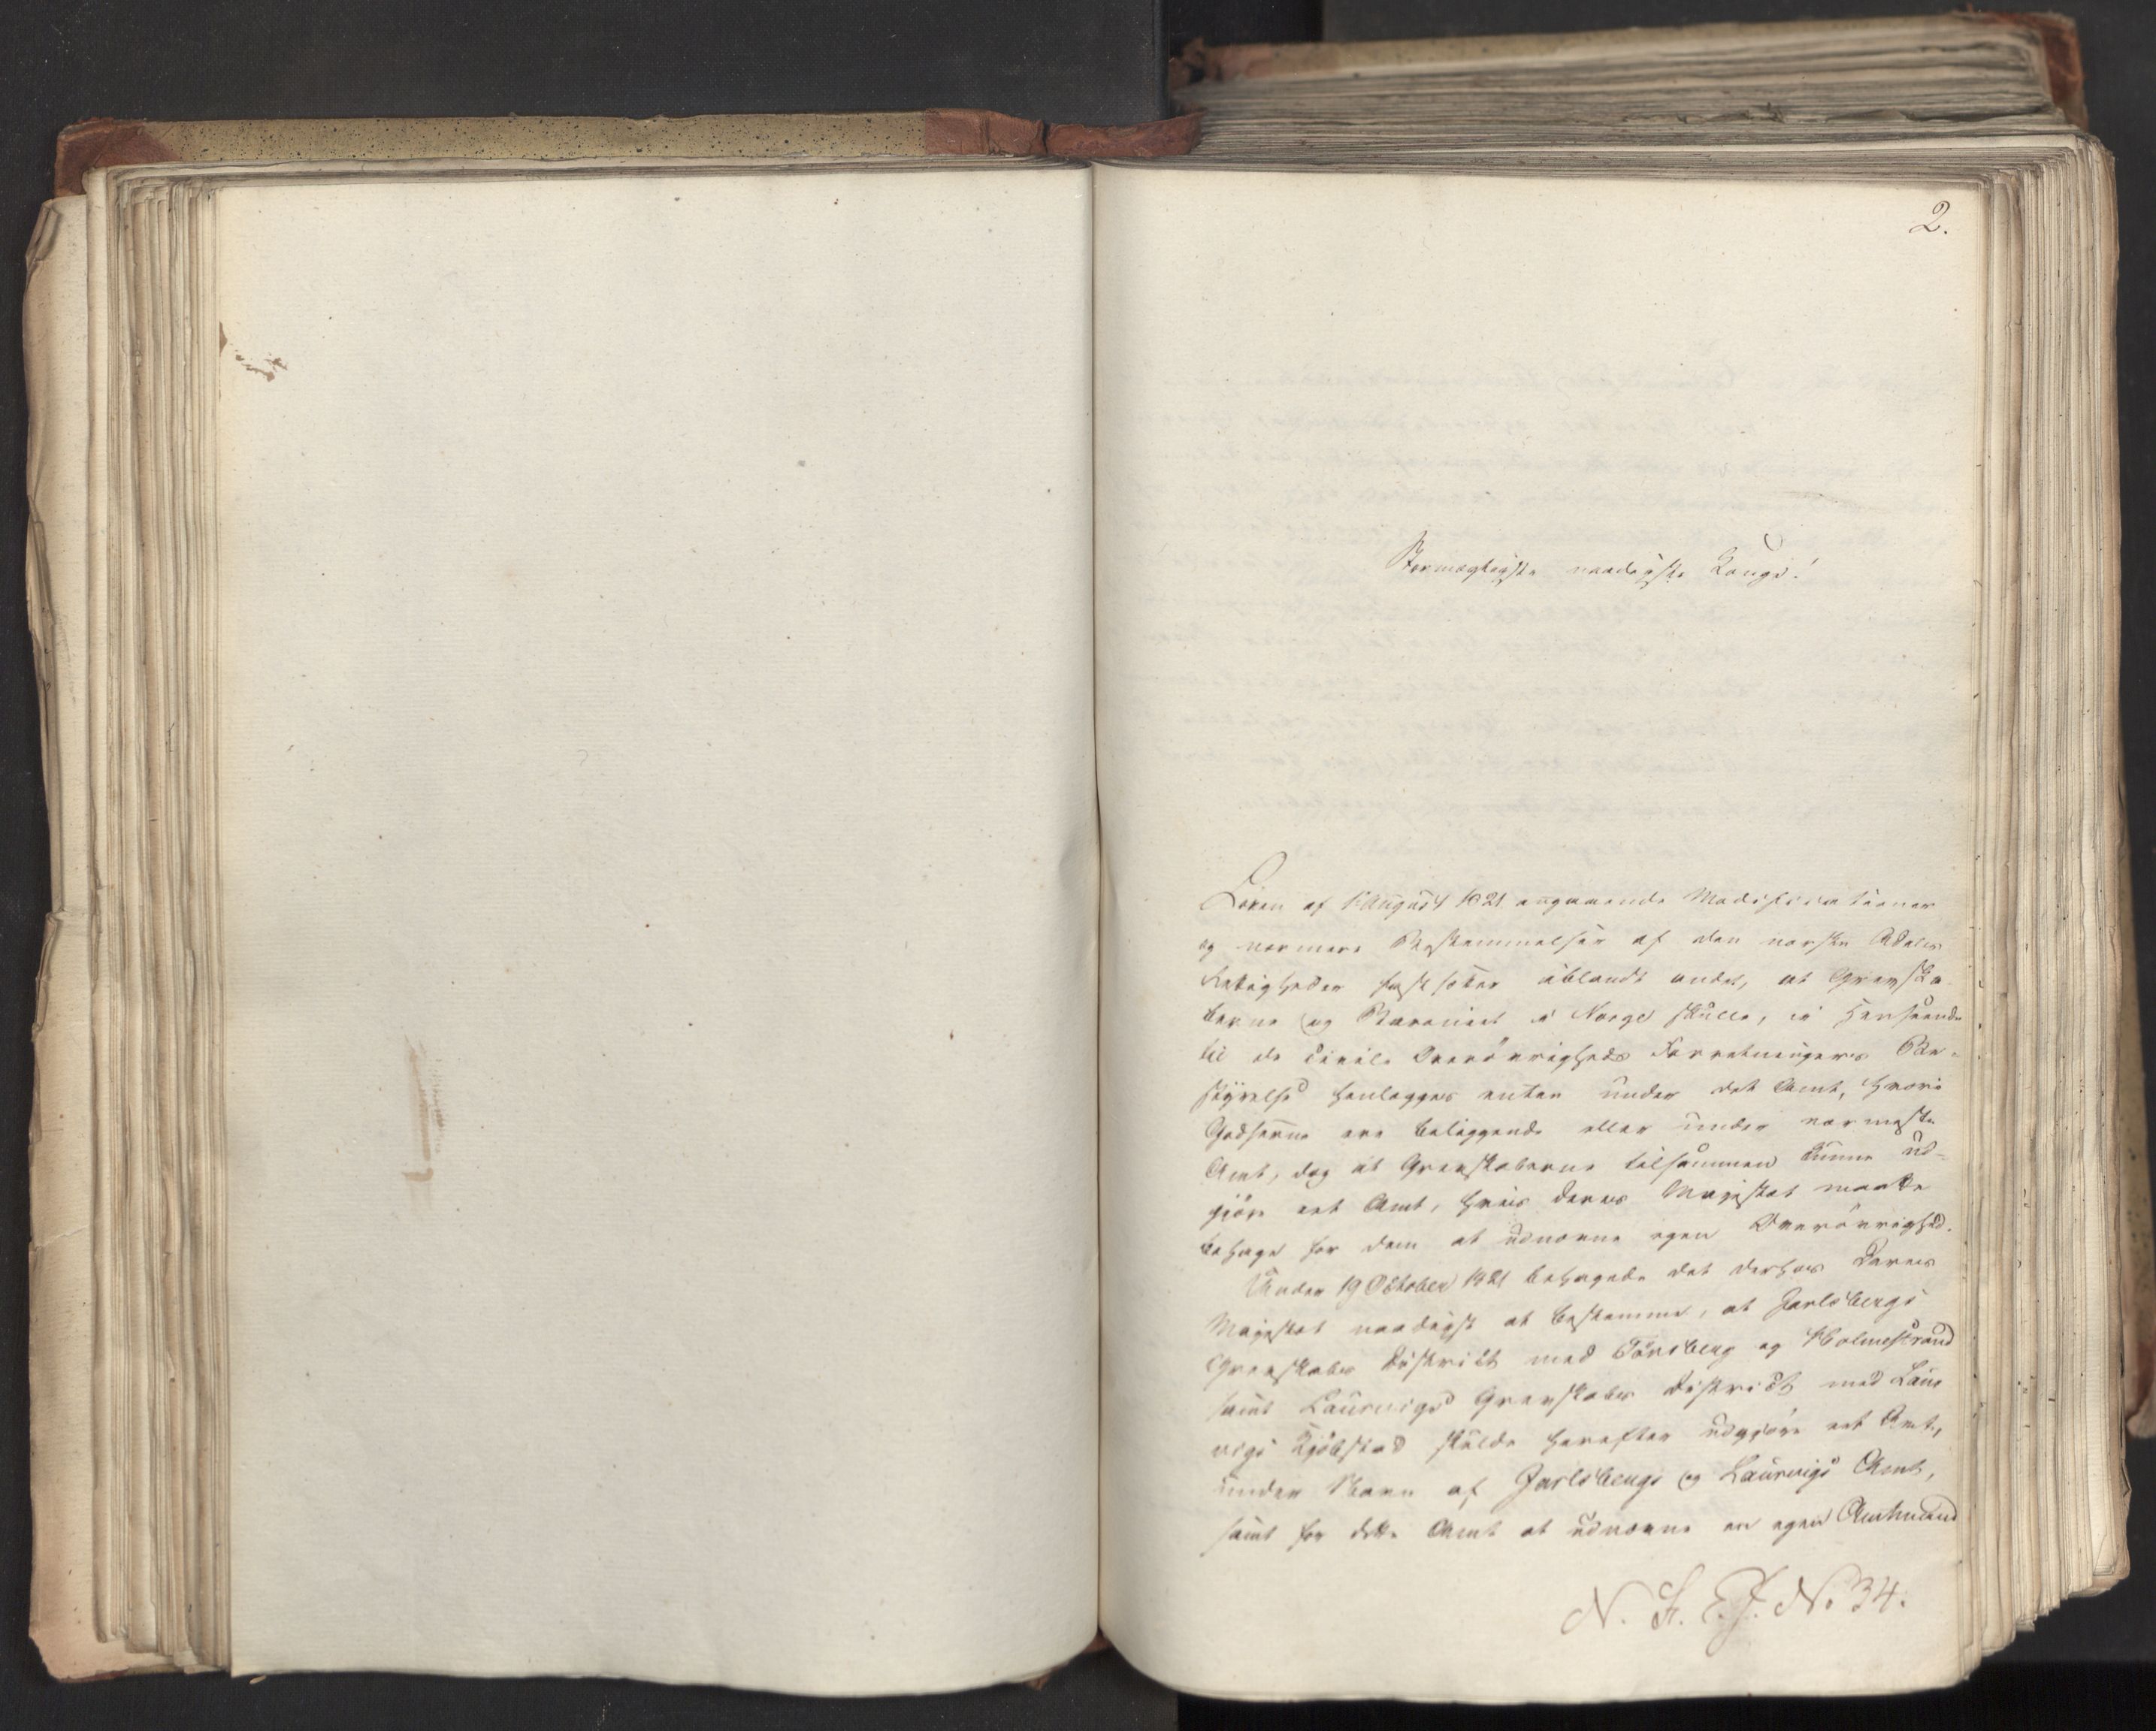 2.
Stormægtigste naadigste Konge!
Loven af 1 August 1821 angaaende Modificationer
og nærmere Bestemmelser af den norske Adels
Rettigheder fastsætter iblandt andet, at Grevska-
berne og Baroniet i Norge skulle, i Henseende
til de civile Overövrigheds Forretningers Be-
styrelse henlægges enten under det Amt, hvori
Godserne ere beliggende eller under nærmeste
Amt, dog at Grevskaberne tilsammen kunne ud-
gjöre eet Amt, hvis Deres Majestæt maatte
behage for dem at udnævne egen Overövrighed.
Under 19 October 1821 behagede det derhos Deres
Majestæt naadigst at bestemme, at Jarlsbergs
Grevskabs District med Tönsberg og Holmestrand
samt Laurvigs Grevskabs District med Laur
vigs Kjöbstad skulde herefter udgjöre eet Amt,
under Navn af Jarlsbergs og Laurvigs Amt,
samt for dette Amt at udnævne en egen Amtmand
N. St. E. J. No 34.